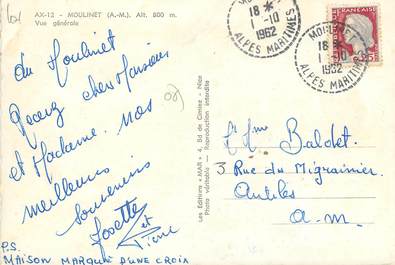 AX-12 - MOULINET (A.-M.). Alt. 800 m.
Vue générale
du Moulinet
Recevez chers Monsieur
et Madame. nos
meilleurs
souvenirs
Josette
et
Pierre
P.S.
MAISON MARQUÉE D'UNE CROIX
Les Editions «MAR» 4, Bd de Cimiez - Nice
Photo véritable - Reproduction interdite
MOULINET
18 *
1 -10
1962
ALPES MARITIMES
MOULINET
18 *
1 -10
1962
ALPES MARITIMES
FRANÇAISE
0,25
Mr Mme Baldet
3 Rue du Migrainier
Antibes
A.M.